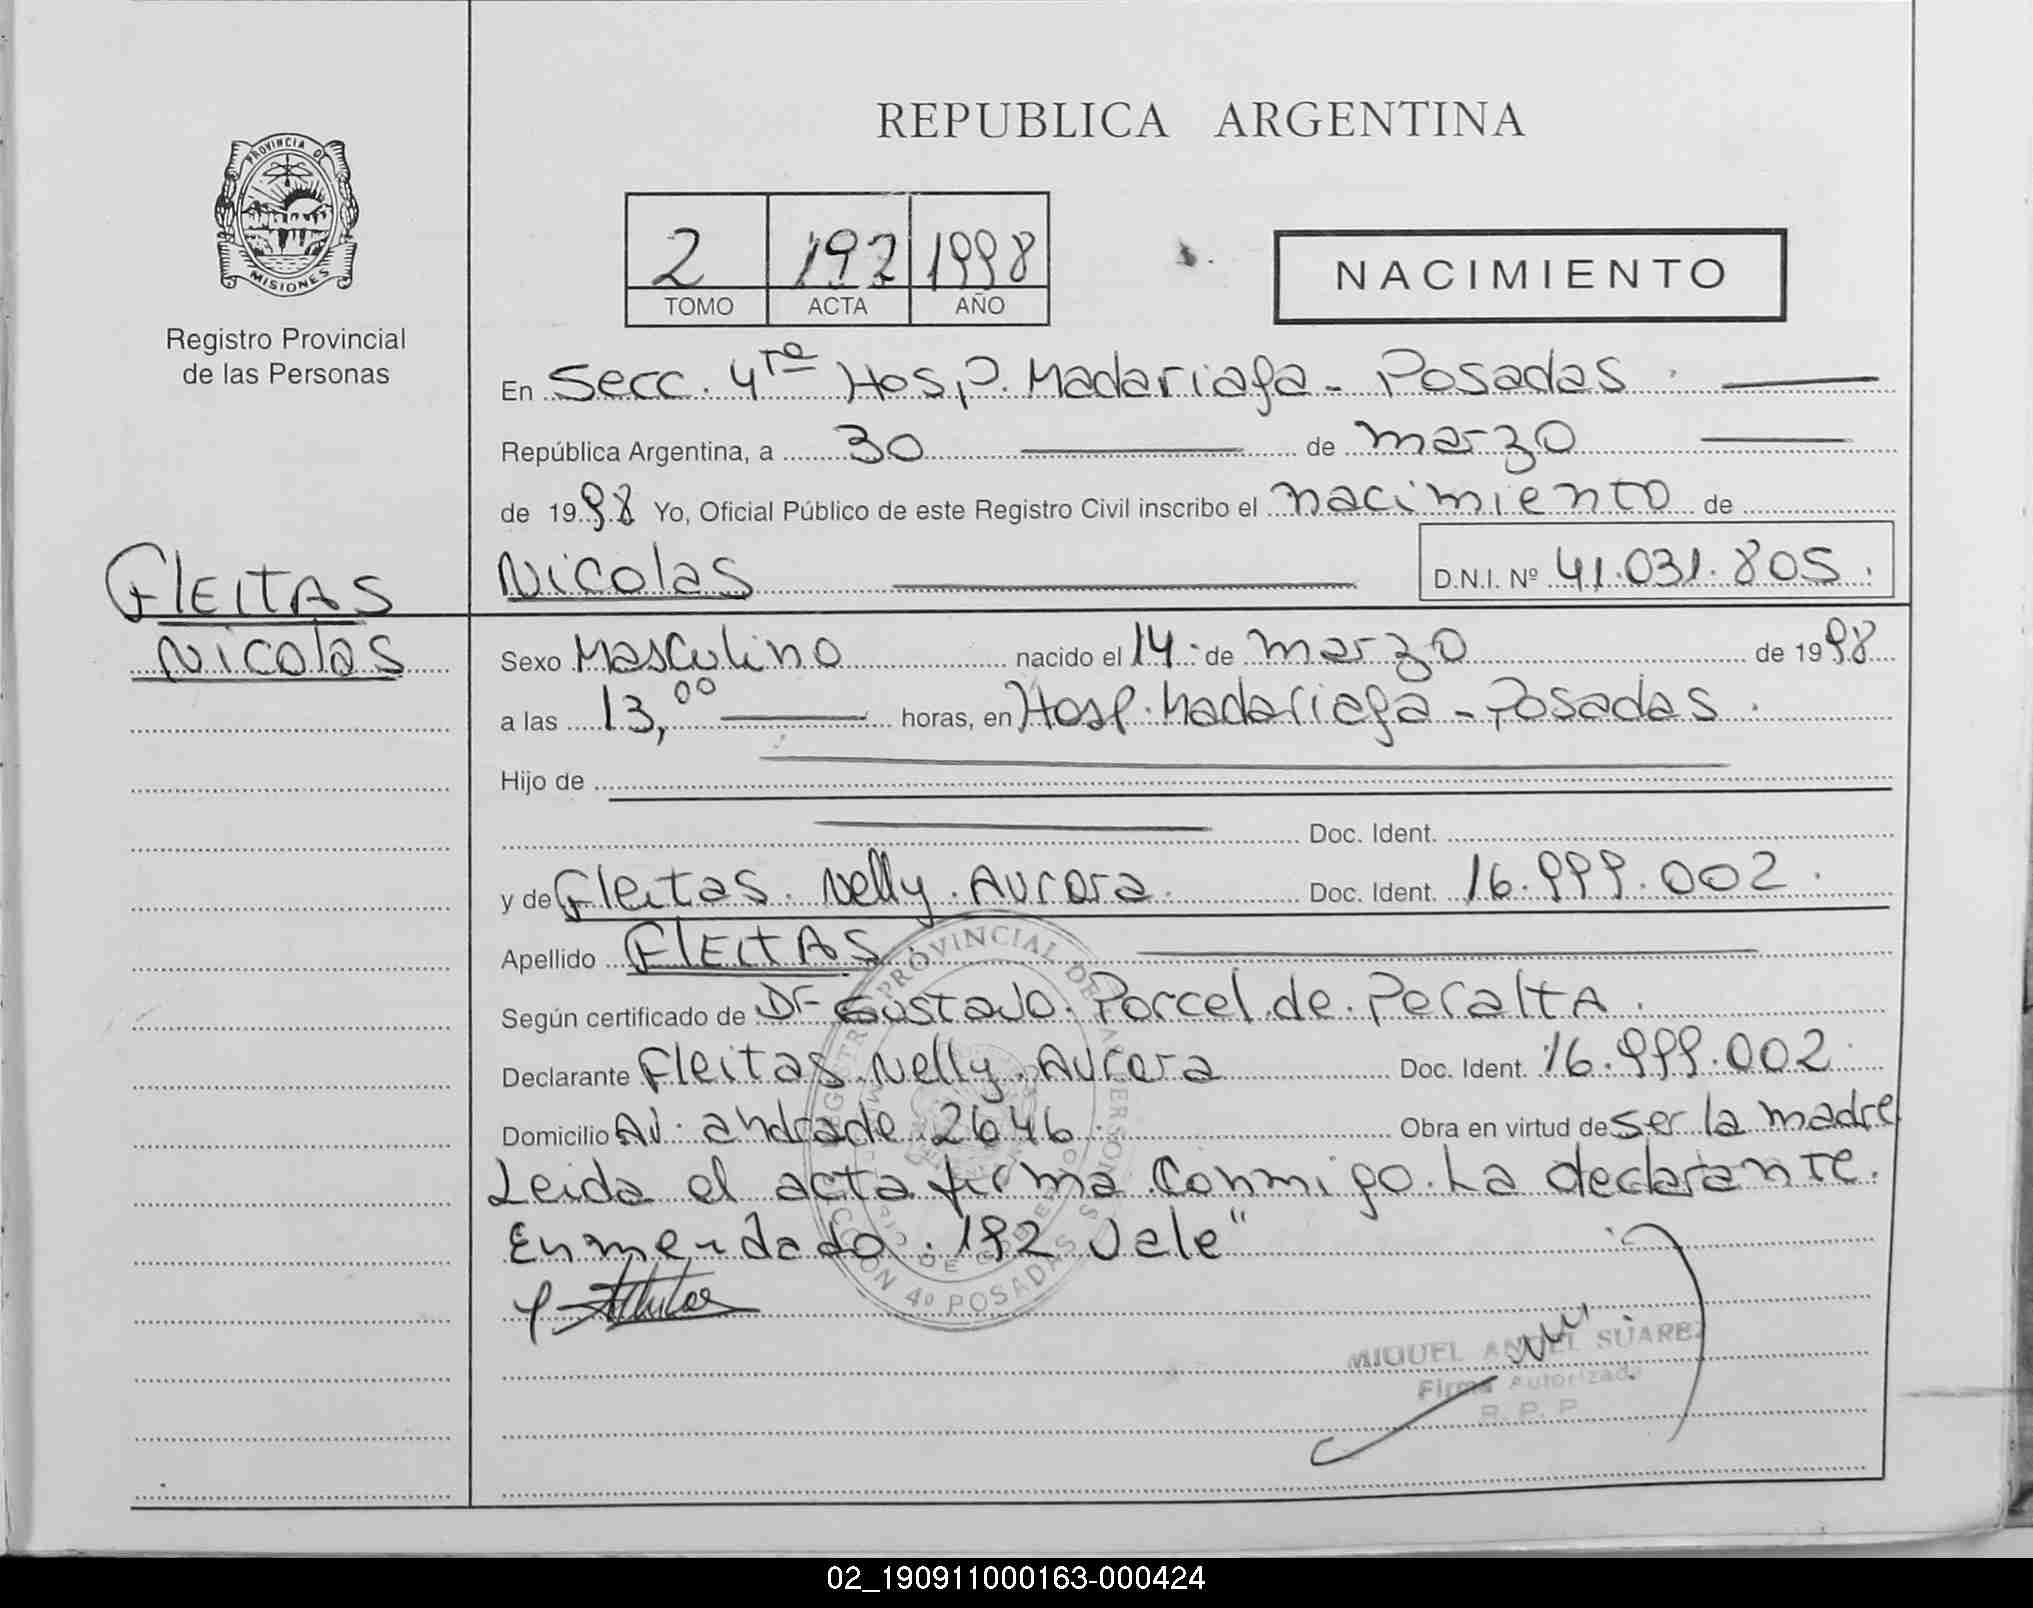 REPUBLICA ARGENTINA
PROVINCIA DE
MISIONES
Registro Provincial
de las Personas
2 192 1998
TOMO ACTA AÑO
NACIMIENTO
En Secc. 4ta Hosp. Madariaga - Posadas.
República Argentina, a 30 de marzo
de 1998 Yo, Oficial Público de este Registro Civil inscribo el nacimiento de
FLEITAS
Nicolas
Nicolas D.N.I. Nº 41.031.805.
Sexo Masculino nacido el 14 de marzo de 1998
a las 13,00 horas, en Hosp. Madariaga - Posadas.
Hijo de
Doc. Ident.
y de Fleitas. Nelly. Aurora. Doc. Ident. 16.999.002.
Apellido FLEITAS.
Según certificado de Dr Gustavo. Porcel. de. Peralta.
Declarante Fleitas Nelly. Aurora Doc. Ident. 16.999.002.
Domicilio Av. andrade 2646. Obra en virtud de ser la madre
Leida el acta firma Conmigo. La declarante.
Enmendado. 192 Vale"
MIGUEL ANGEL SUAREZ
Firma Autorizada
R. P. P.
02_190911000163-000424